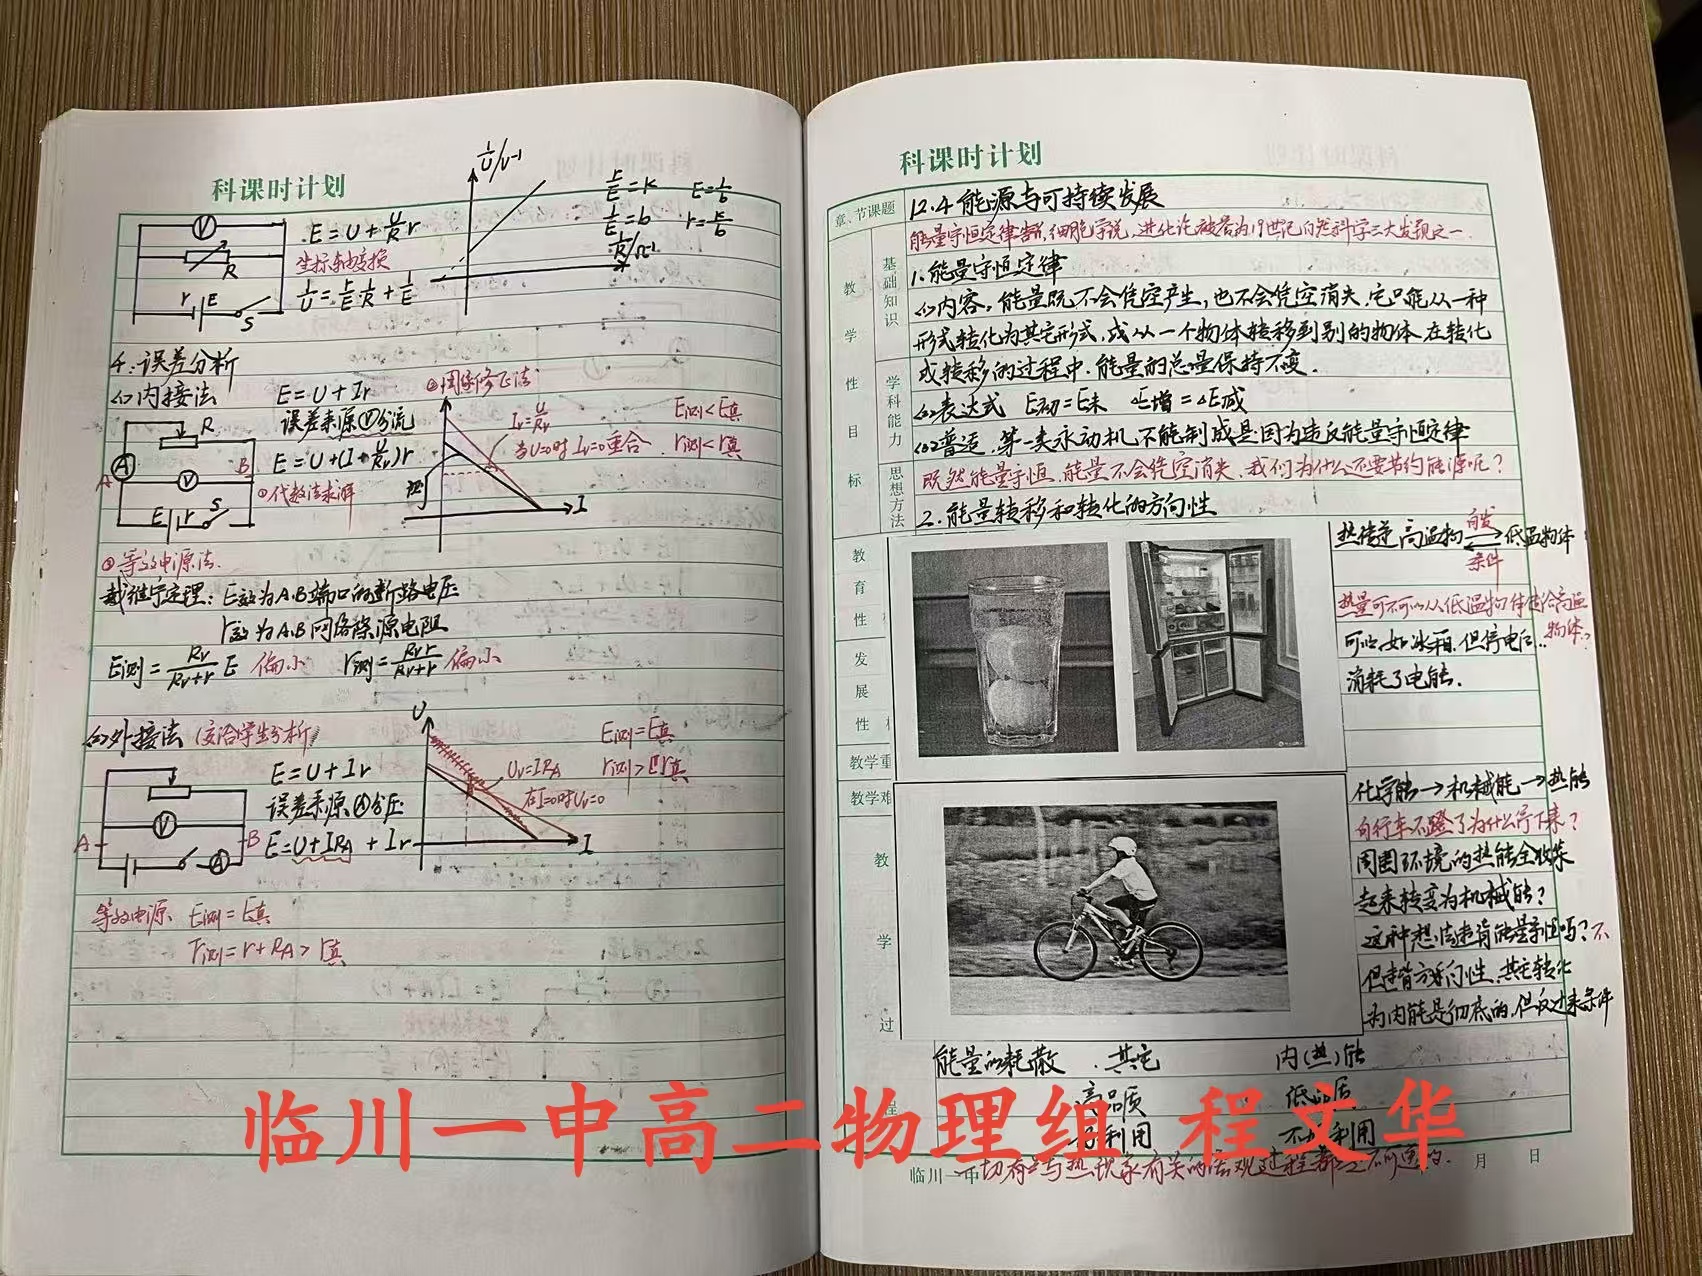 科课时计划
E = U + U/R r
坐标轴变换
1/U = r/E · 1/R + 1/E
1/U/V⁻¹
r/E = k
E = 1/b
1/E = b
r = k/b
1/R/Ω⁻¹
V
R
r E
S
4.误差分析
(1)内接法
E = U + Ir
误差来源 Ⓥ分流
E = U + (I + U/Rv)r
①代数法求解
R
A
B
A
V
E r
S
②图像修正法
Iv = U/Rv
当U=0时 Iv=0重合
E测<E真
r测<r真
I
③等效电源法
戴维宁定理: E效为A.B端口的断路电压
r效为A.B网络除源电阻
E测 = Rv/(Rv+r) E 偏小 r测 = Rvr/(Rv+r) 偏小
(2)外接法 (交给学生分析)
E = U + Ir
误差来源 Ⓐ分压
E = U + IRA + Ir
A
V
B
A
U
UV=IRA
在I=0时UV=0
E测=E真
r测>r真
I
等效电源 E测 = E真
r测 = r + RA > r真
科课时计划
章、节课题
12.4 能源与可持续发展
教学性目标
基础知识
学科能力
思想方法
教育性发展性
教学重
教学难
教学过程
1.能量守恒定律
(1)内容: 能量既不会凭空产生,也不会凭空消失,它只能从一种
形式转化为其它形式,或从一个物体转移到别的物体,在转化
或转移的过程中,能量的总量保持不变.
(2)表达式 E初=E末 △E增=△E减
(3)普适. 第一类永动机不能制成是因为违反能量守恒定律
既然能量守恒,能量不会凭空消失,我们为什么还要节约能源呢?
2.能量转移和转化的方向性
热传递 高温物 自发 低温物体
条件
热量可不可以从低温物体传给高温
物体?
可以,如冰箱.但停电后..
消耗了电能.
化学能→机械能→热能
自行车不蹬了为什么停下来?
周围环境的热能全收集
起来转变为机械能?
这种想法违背能量守恒吗?不
但违背方向性,其它转化
为内能是彻底的,但反过来条件
能量的耗散 其它 内(热)能
高品质 低品质
利用 利用
临川一中高二物理组 程文华
临川一中
一切 与热现象有关的宏观过程都 不可逆的.
月 日